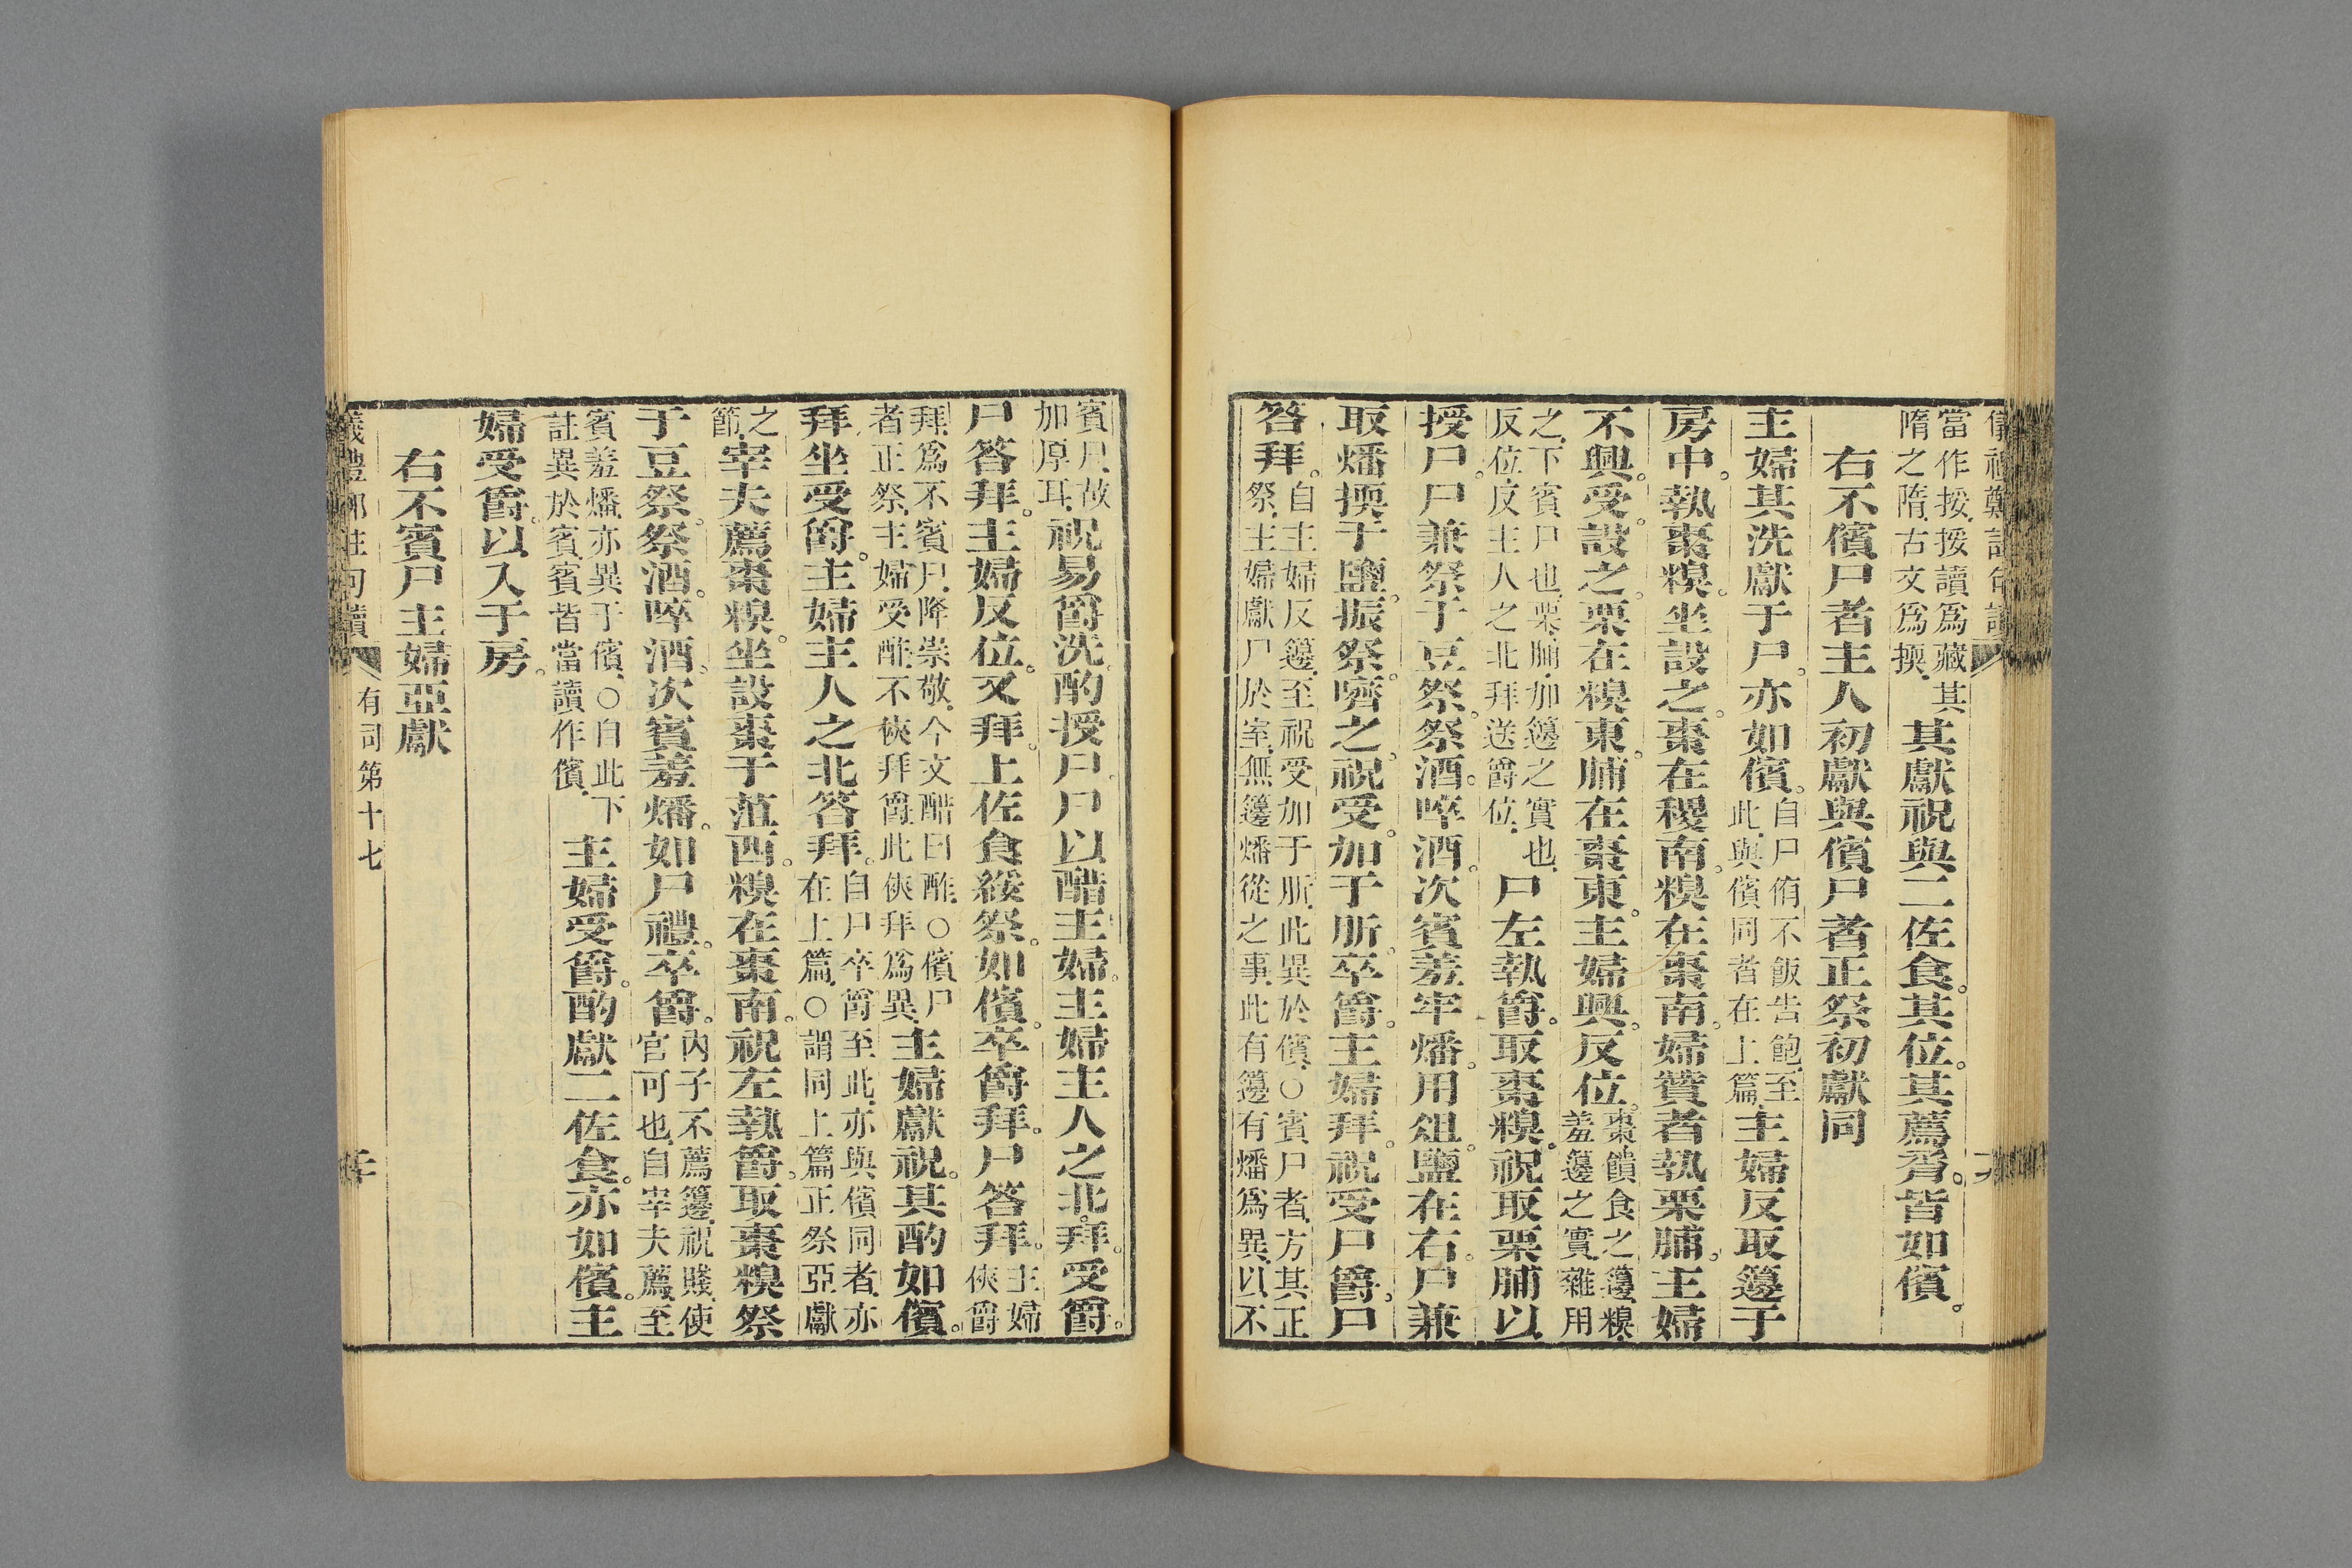 儀禮鄭註句讀
當作挼挼讀爲藏其
隋之隋古文爲擩
其獻祝與二佐食。其位。其薦脀。皆如儐。
右不儐尸者主人初獻與儐尸者正祭初獻同
主婦其洗獻于尸。亦如儐。
自尸侑不飯告飽至
此與儐同者在上篇
主婦反取籩于
房中。執棗糗。坐設之。棗在稷南。糗在棗南。婦贊者執栗脯。主婦
不興。受。設之。栗在糗東。脯在棗東。主婦興。反位。
棗饋食之籩糗
羞籩之實雜用
之下賓尸也栗脯加籩之實也
反位反主人之北拜送爵位
尸左執爵。取棗糗。祝取栗脯以
授尸。尸兼祭于豆祭。祭酒。啐酒。次賓羞牢燔。用俎。鹽在右。尸兼
取燔擩于鹽。振祭。嚌之。祝受。加于肵。卒爵。主婦拜。祝受尸爵。尸
答拜。
自主婦反籩至祝受加于肵此異於儐○賓尸者方其正
祭主婦獻尸於室無籩燔從之事此有籩有燔爲異以不
賓尸故
加厚耳
祝易爵洗。酌授尸。尸以醋主婦。主婦主人之北。拜。受爵。
尸答拜。主婦反位。又拜。上佐食綏祭。如儐。卒爵拜。尸答拜。
主婦
俠爵
拜爲不賓尸降崇敬今文醋曰酢○儐尸
者正祭主婦受酢不俠拜爵此俠拜爲異
主婦獻祝。其酌如儐。
拜坐受爵。主婦主人之北答拜。
自尸卒爵至此亦與儐同者亦
在上篇○謂同上篇正祭亞獻
之
節
宰夫薦棗糗。坐設棗于菹西。糗在棗南。祝左執爵。取棗糗祭
于豆祭。祭酒。啐酒。次賓羞燔。如尸禮。卒爵。
內子不薦籩祝賤使
官可也自宰夫薦至
賓羞燔亦異于儐○自此下
註異於賓賓皆當讀作儐
主婦受爵。酌獻二佐食。亦如儐。主
婦受爵。以入于房。
右不賓尸主婦亞獻
儀禮鄭註句讀
有司第十七